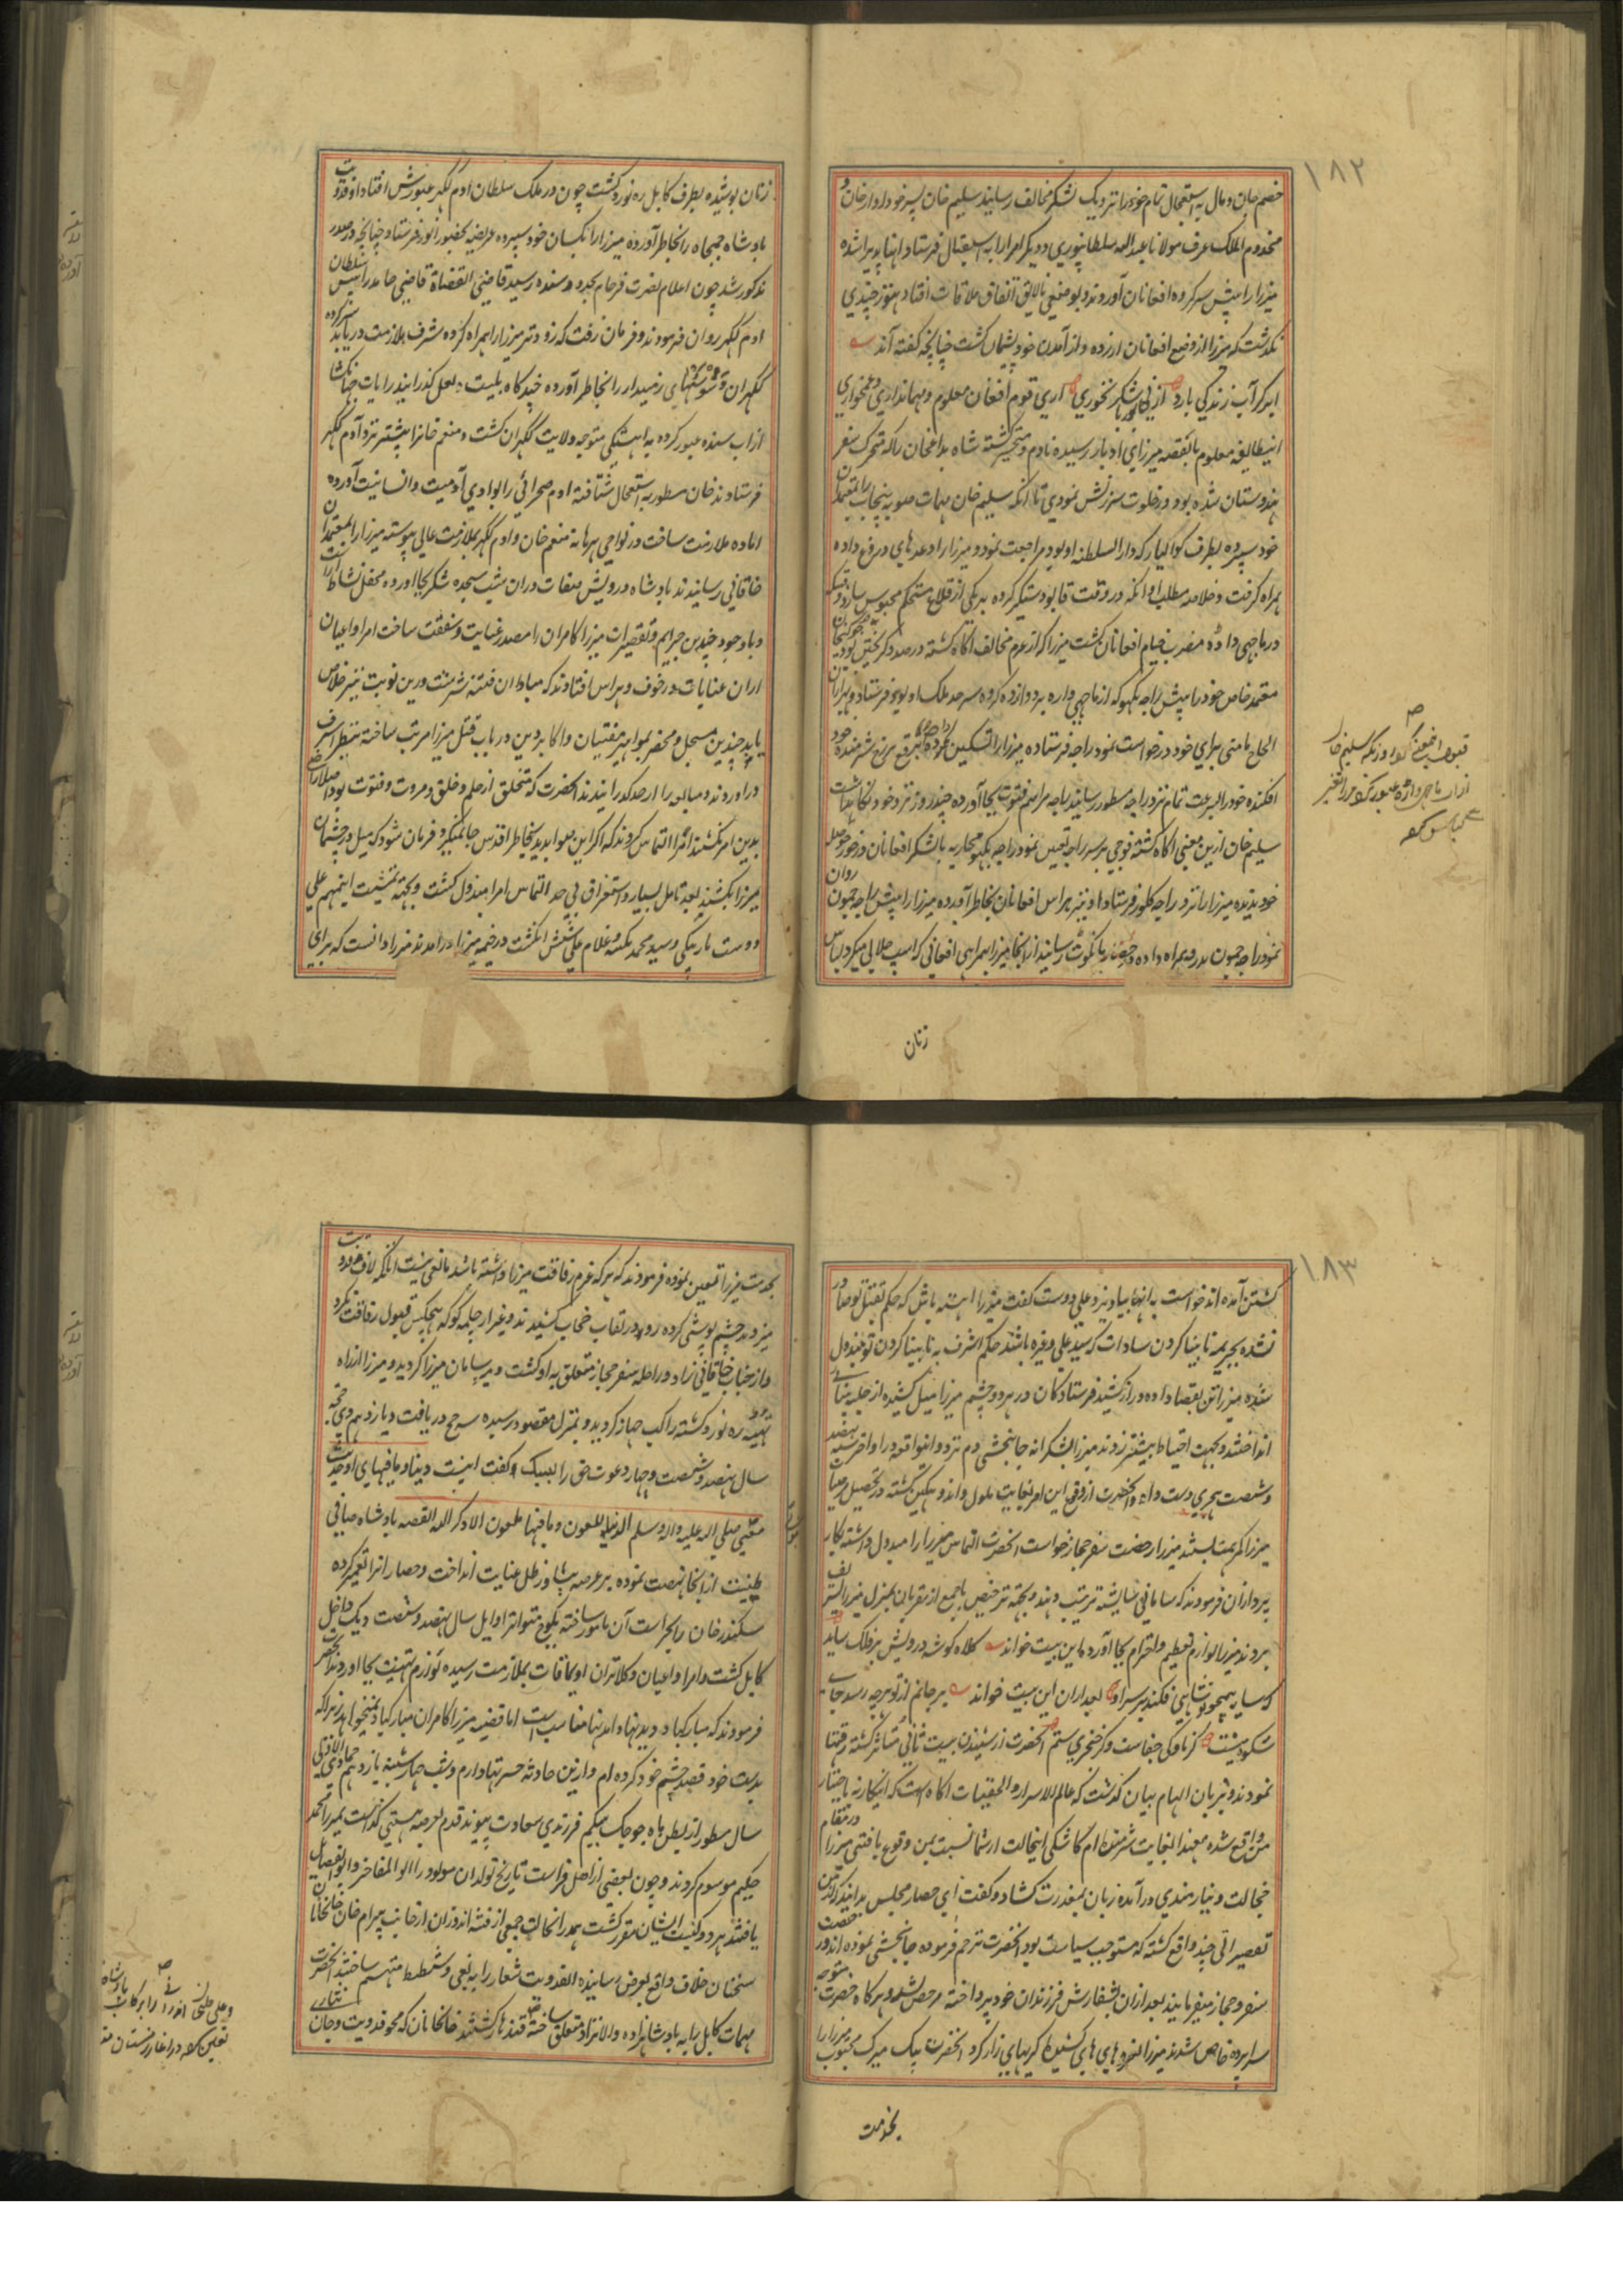 ١٨٢
خصم جان و مال به استعجال تمام خود را نزدیک لشکر مخالف رسانید سلیم خان پسر خود اوارخان و
مخدوم الملک عرف مولانا عبد الله سلطانپوری و دیگر امرا را به استقبال فرستاد اینها پذیرا شده
میرزا را پیش سرکرده افغانان آوردند و بوضعی نالایق اتفاق ملاقات افتاد هنوز چندی
نگذشت که میرزا از وضع افغانان آزرده و از آمدن خود پشیمان گشت چنانچه گفته آند
ابر گر آب زندگی بارد از نی شکر نخوری آری قوم افغان معلوم و مهمانداری و غمخواری
اینطایفه معلوم بالقصه میرزای ادبار رسیده نادم و متحیر گشته شاه بداغخان را که محرک سفر
هندوستان شده بود در خلوت سرزنش نمودی تا آنکه سلیم خان مهمات صوبه پنجاب را بمعتمدان
خود سپرده بطرف گوالیار که دار السلطنه او بود مراجعت نمود و میرزا را وعدهای دروغ داده
همراه گرفت و خلاصه مطلب او آنکه در وقت قابو دستگیر کرده به یکی از قلاع مستحکم محبوس سازد
در ماچهی واره مضرب خیام افغانان گشت میرزا که از عزم مخالف آگاه گشته در صدد گریختن بود
معتمد خاص خود را پیش راجه بکهو که از ماچهی واره به دوازده کروه سرحد ملک او بود فرستاد و بهزاران
الحاح مأمنی برای خود درخواست نمود راجه فرستاده میرزا را تسکین کرده برقع بر رخ شرمنده خود
افکنده خود را بسرعت تمام نزد راجه مسطور رسانید راجه مراسم فتوت بجا آورده چند روز نزد خود نگاهداشت
سلیم خان ازین معنی آگاه گشته فوجی بر سر راجه تعیین نمود راجه بکهو محاربه با لشکر افغانان در خور حوصله
خود ندیده میرزا را نزد راجه کهلور فرستاد او نیز هراس افغانان بخاطر آورده میرزا را پیش راجه جمون روان
نمود راجه جمون بدرقه همراه داده میرزا را بمانکوت رسانید از آنجا میرزا بهمراهی افغانی که اسپ جلابی میکرد بلباس
زنان
زنان پوشیده بطرف کابل ره نورد گشت چون در ملک سلطان آدم لکهر عبورش افتاد او فدویت
بادشاه جمجاه را بخاطر آورده میرزا را بکسان خود سپرده عریضه بحضور انور فرستاد چنانچه در صدر
مذکور شد چون اعلام نصرت فرجام بحدود سنده رسید قاضی القضاة قاضی حامد را پیش سلطان
آدم لکهر روان فرمودند و فرمان رفت که زودتر میرزا را همراه گرفته شرف ملازمت دریابد
لکهران و شوشتهای زمیندار را بخاطر آورده خیرگاه بلیت لعل گذرانید رایات جهانگشا
از آب سنده عبور کرده به آهستگی متوجه ولایت لکهران گشت و منعم خانرا پیشتر نزد آدم لکهر
فرستادند خان مسطور به استعجال شتافته آدم صحرائی را بوادی آدمیت و انسانیت آورده
آماده ملازمت ساخت در نواحی پرهاله منعم خان و آدم لکهر بملازمت عالی پیوسته میرزا را بمعتمدان
خاقانی رسانیدند بادشاه درویش صفات دران شب سجده شکر بجا آورده محفل نشاط آراست
و باوجود چندین جرایم و تقصیرات میرزا کامران را مصدر عنایت و شفقت ساخت امرا و اعیان
از ان عنایات در خوف و هراس افتادند که مبادا ان فتنه سرشت درین نوبت نیز خلاص
یابد چندین مسجل و محضر بمواهیر مفتیان و اکابر دین در باب قتل میرزا مرتب ساخته بنظر اشرف
در آوردند و مبالغه را از حد گذرانیدند آنحضرت که متخلق از حلم و خلق و مروت و فتوت بود اصلا راضی
بدین امر نگشتند امرا التماس کردند که اگر این صوابدید بخاطر اقدس جا نمیگیرد فرمان شود که میل در چشمان
میرزا بکشند بعد تامل بسیار و استغراق بی حد التماس امرا مبذول گشت و بجهته تمشیت این مهم علی
دوست باربیگی و سید محمد بکنه و غلام علی شش انگشت در خیمه میرزا در آمدند میرزا دانست که برای
١٨٣
کشتن آمده اند خواست به آنها بیاویزد علی دوست گفت میرزا آهسته باش که حکم بقتل تو صادر
نشده بجریمه نابینا کردن سادات که سید علی و غیره باشند حکم اشرف به نابینا کردن تو مبذول
شده میرزا تن بقضا داده دراز کشید فرستادگان در هر دو چشم میرزا میل کشیده از حلیه بینائی
انداختند و بجهت احتیاط بیشتر زدند میرزا بشکرانه جانبخشی دم نزد و اینواقعه در اواخر سنه نهصد
و شصت هجری دست داد و آنحضرت از وقوع این امر بغایت ملول و اندوهگین گشته در تحصیل رضای
میرزا کمر همت بستند میرزا رخصت سفر حجاز خواست آنحضرت التماس میرزا را مبذول داشته بکار
پردازان فرمودند که سامانی شایسته ترتیب دهند و بجهته ترخیص با جمع از مقربان بمنزل میرزا تشریف
بردند میرزا لوازم تعظیم و احترام بجا آورد و این بیت خواند کلاه گوشه درویش بر فلک ساید
که سایه همچو تو شاهی فکند بر سر او بعد از ان این بیت خواند بر جانم از تو هرچه رسد جای
شکوه نیست گر ناوک جفاست و گر خنجر ستم آنحضرت از شنیدن بیت ثانی متاثر گشته رقتها
نمودند و بزبان الهام بیان گذشت که عالم الاسرار و الخفیات آگاه است که اینکار نه باختیار
من واقع شده معهذا بغایت شرمنده ام کاشکی اینحالت از شما نسبت بمن وقوع یافتی میرزا در مقام
خجالت و نیازمندی در آمده زبان بمعذرت گشاد و گفت ای حضار مجلس بدانید که از من
تقصیراتی چند واقع گشته که مستوجب سیاست بود آنحضرت ترحم فرموده جانبخشی نموده اند و رخصت
سفر حجاز میفرمایند بعد از ان بسفارش فرزندان خود پرداخته مرخص شد و هرگاه حضرت متوجه
سراپرده خاص شدند میرزا نعره و های های کشیده گریهای زار کرد آنحضرت بیک میرک محبوب میرزا را
بخدمت
بخدمت میرزا تعیین نموده فرمودند که هر که عزم رفاقت میرزا داشته باشد مانعی نیست آنانکه لاف فدویت
میزدند چشم پوشی کرده رو در نقاب حجاب کشیدند و غیر از چلمه کوکه هیچکس قبول رفاقت نکرد
و از جناب خاقانی زاد و راحله سفر حجاز متعلق به او گشت و سر سامان میرزا گردید و میرزا از راه
تهته ره نورد گشته راکب جهاز گردید و بمنزل مقصود رسیده سه حج دریافت و یازدهم ذی حجه
سال نهصد و شصت و چهار دعوت حق را لبیک گفت اینست دنیا و مافیهای او حدیث
مصطفی صلی الله علیه و آله و سلم الدنیا ملعون و مافیها ملعون الا ذکر الله القصه بادشاه صافی
طینت از آنجا نهضت نموده بر عرصه پشاور ظل عنایت انداخت و حصار انرا تعمیر کرده
سکندر خان را بحراست آن مامور ساخته بکوچ متواتر اوایل سال نهصد و شصت و یک داخل
کابل گشت و امرا و اعیان و کلانتران اویماقات بملازمت رسیده لوازم تهنیت بجا آوردند آنحضرت
فرمودند که مبارکباد دیدنها و آمدنها مناسب است اما قضیه میرزا کامران مبارکباد نمیخواهد زیرا که
بدست خود قصد چشم خود کرده ام و ازین حادثه حسرتها دارم و شب چهارشنبه یازدهم جمادی الاولی
سال مسطور از بطن ماه جوجک بیگم فرزندی سعادت پیوند قدم بعرصه هستی گذاشت بمیرزا محمد
حکیم موسوم کردند و چون بعضی از اهل فراست تاریخ تولد ان مولود را ابو المفاخر و ابو الفضایل
یافتند هر دو کنیت ایشان مقرر گشت همدرانحالت جمعی از فتنه اندوزان از جانب بیرام خان خانخانان
سخنان خلاف واقع بعرض رسانیده ان فدویت شعار را به بغی و تسلط متهم ساختند آنحضرت
مهمات کابل را به بادشاهزاده والانژاد متعلق ساخته قندهار گشتند خانخانان که محو فدویت و جان نثاری